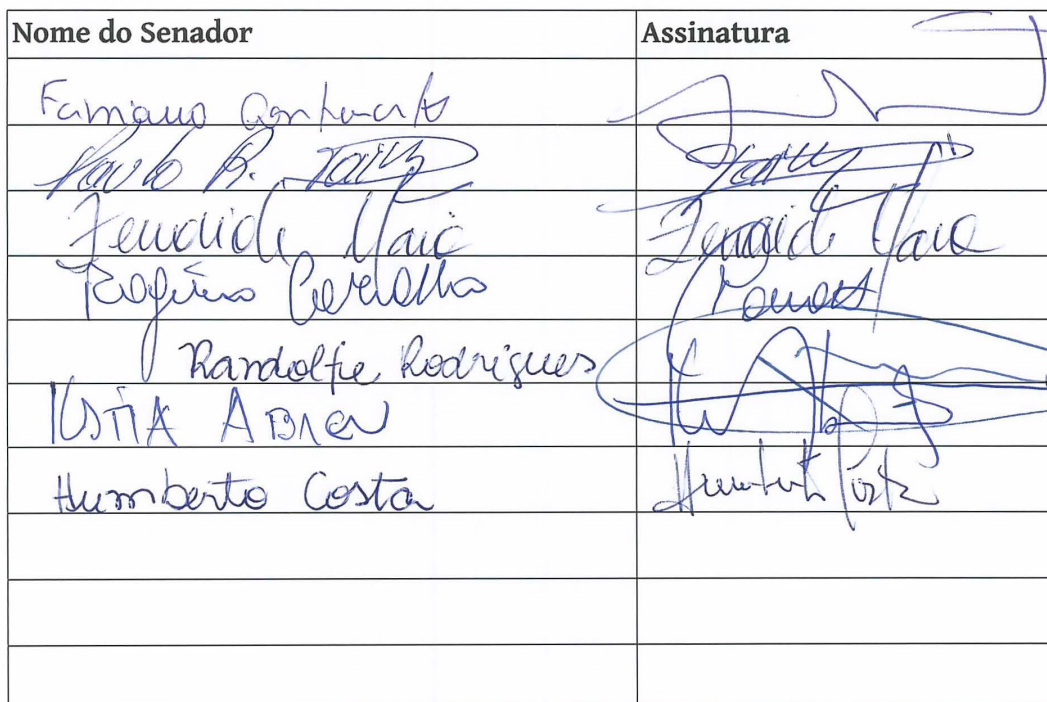 Nome do Senador Assinatura
Fabiano Contarato
Paulo R. Paim Paim
Zenaide Maia Zenaide Maia
Rogério Carvalho
Randolfe Rodrigues
Kátia Abreu
Humberto Costa Humberto Costa